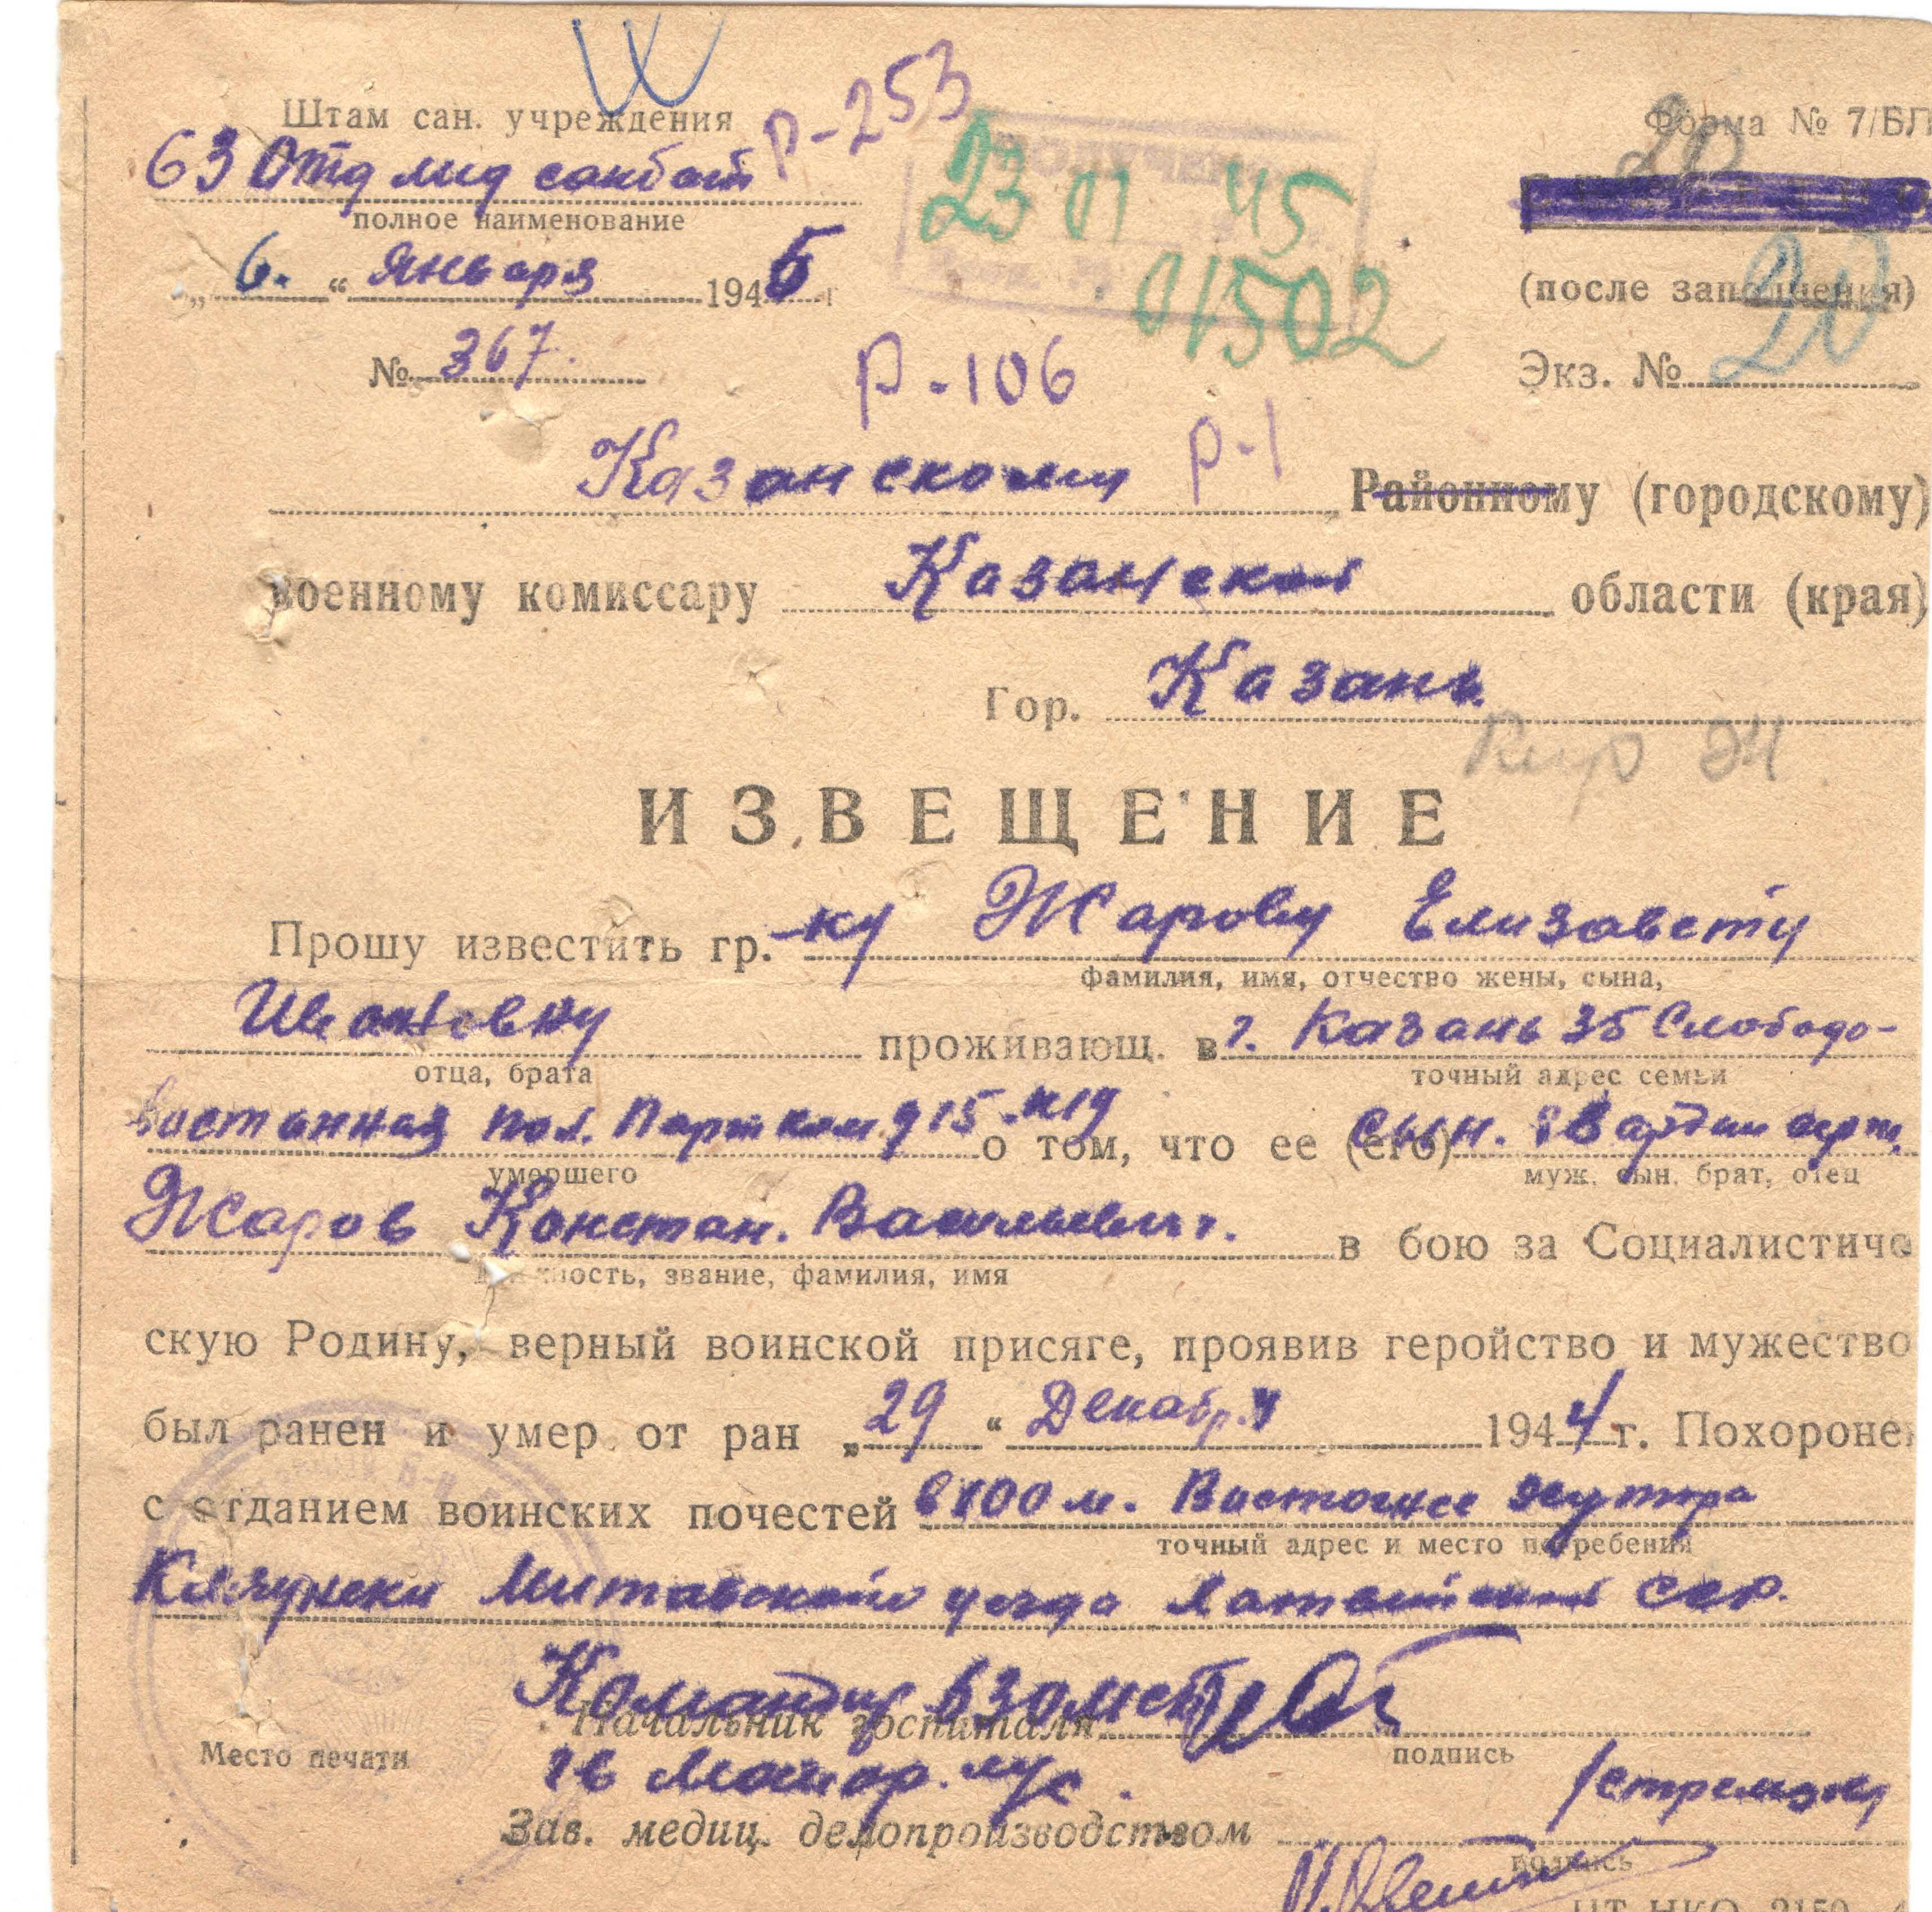 Штам сан. учреждения
Р-253
Форма № 7/БЛ
20
63 Отд мед санбат
полное наименование
23 01 45
01502
„ 6. “ Января 1945 г
(после заполнения)
20
№ 367.
Р-106
Экз. №
Казанскому Р-1 Районному (городскому)
военному комиссару Казанской области (края)
Гор. Казань
Кир 24
ИЗВЕЩЕНИЕ
Прошу известить гр.-ку Жарову Елизавету
фамилия, имя, отчество жены, сына,
Ивановну проживающ. в г. Казань 35 Слободо-
отца, брата
точный адрес семьи
Востанная пол. Парт ком д 15 к 19 о том, что ее (его) сын. гвардии серж.
умершего
муж, сын, брат, отец
Жаров Констан. Васильевич. в бою за Социалистиче
должность, звание, фамилия, имя
скую Родину, верный воинской присяге, проявив геройство и мужество
был ранен и умер от ран „ 29 “ Декабря 1944 г. Похоронен
с отданием воинских почестей в 100 м. Восточнее хутра
точный адрес и место погребения
Митавского уезда Латвийской сср.
Командир 63 омсб
Начальник госпиталя
подпись
Место печати
гв Майор. м/с.
Зав. медиц. делопроизводством
подпись